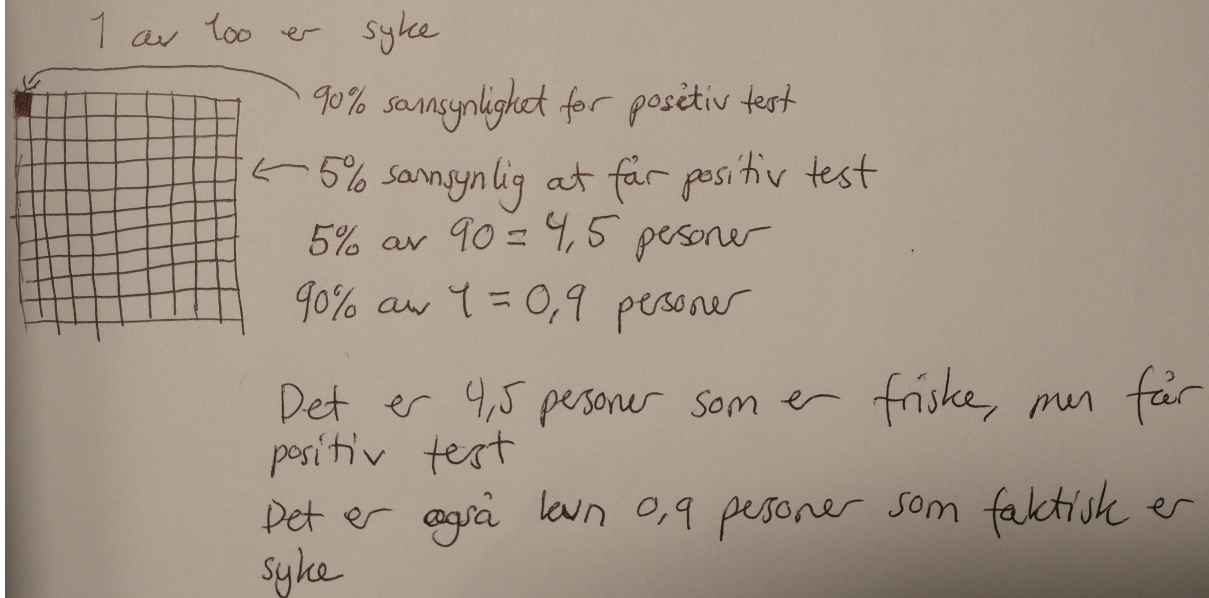 1 av 100 er syke
90% sannsynlighet for positiv test
5% sannsynlig at får positiv test
5% av 90 = 4,5 pesoner
90% av 1 = 0,9 personer
Det er 4,5 pesoner som er friske, men får
positiv test
Det er også kun 0,9 pesoner som faktisk er
syke